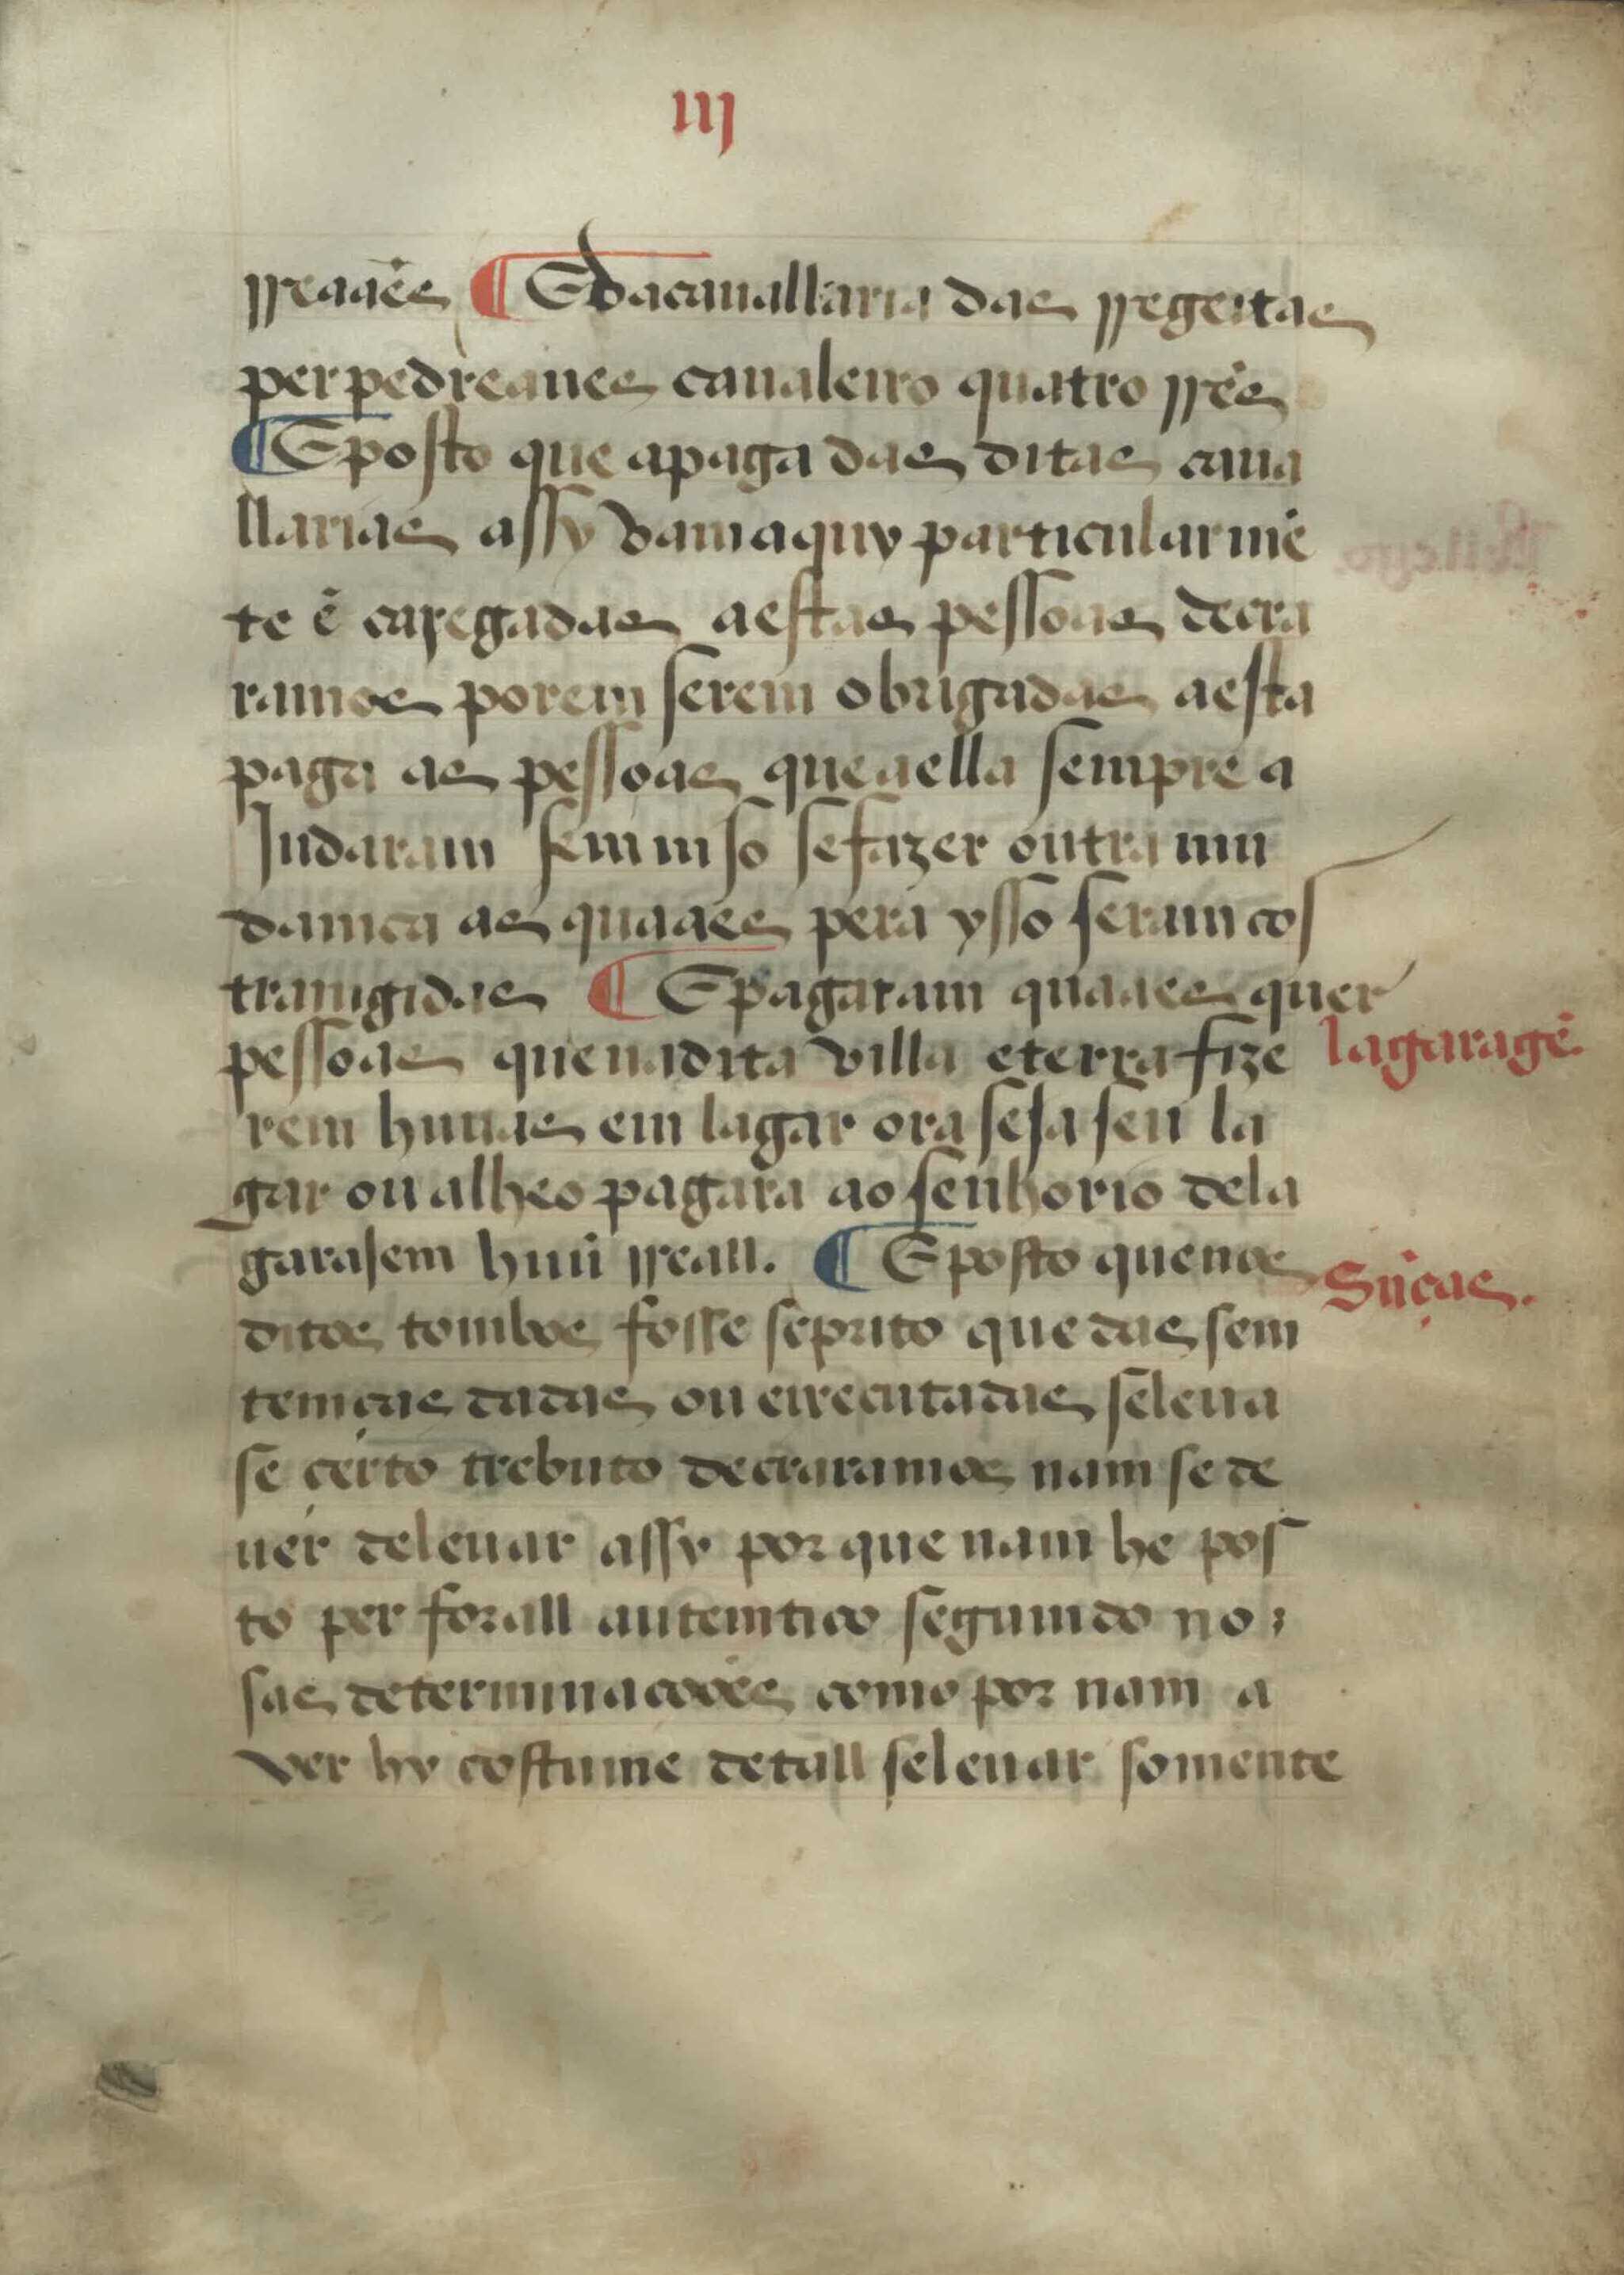 iij
rreaaẽs ¶ E da cauallaria das rregeitas
per pedreanes caualeiro quatro rrẽs
¶ E posto que apaga das ditas caua
llarias assy vam aquy particularmẽ
te ẽ caRegadas aestas pessoas decra
ramos porem serem obrigadas aesta
paga as pessoas que aella sempre a
Judaram sem nisso se fazer outra mu
damca as quaaes pera ysso seram cos
trangidas ¶ E pagaram quaaes quer
pessoas que na dita villa e terra fize
lagaragẽ.
rem huuas em lagar ora seja seu la
gar ou alheo pagara ao senhorio de la
garajem huũ rreall. ¶ E posto que nos
Sñças.
ditos tombos fosse seprito que das sem
temças dadas ou eixecutadas se leua
se certo trebuto decraramos nam se de
uer de leuar assy por que nam he pos
to per forall autemtico segumdo no
sas determinacoões como por nam a
ver hy costume de tall se leuar somente